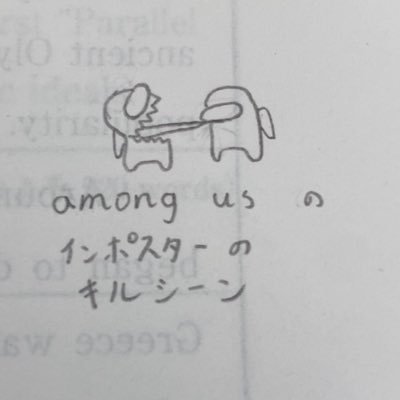 among us の
インポスターの
キルシーン